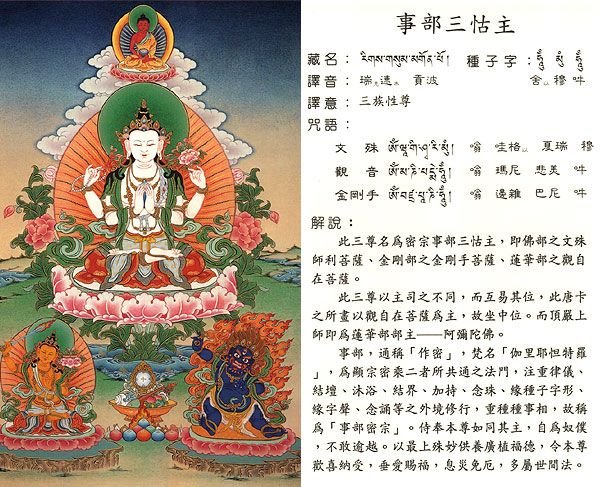 事部三怙主
藏名：རིགས་གསུམ་མགོན་པོ། 種子字：
譯音：瑞 遜 貢波 舍 穆 吽
譯意：三族性尊
咒語：
文殊 嗡 哇格 夏瑞 穆
觀音 ཨོཾ་མ་ཎི་པདྨེ་ཧཱུྃ། 嗡 瑪尼 悲美 吽
金剛手 ཨོཾ་བཛྲ་པཱ་ཎི་ཧཱུྃ། 嗡 邊雜 巴尼 吽
解說：
此三尊名爲密宗事部三怙主，即佛部之文殊
師利菩薩、金剛部之金剛手菩薩、蓮華部之觀自
在菩薩。
此三尊以主司之不同，而互易其位，此唐卡
之所畫以觀自在菩薩爲主，故坐中位。而頂嚴上
師即爲蓮華部部主——阿彌陀佛。
事部，通稱「作密」，梵名「伽里耶怛特羅
」，爲顯宗密乘二者所共通之法門，注重律儀、
結壇、沐浴、結界、加持、念珠、緣種子字形、
緣字聲、念誦等之外境修行，重種種事相，故稱
爲「事部密宗」。侍奉本尊如同其主，自爲如僕
，不敢逾越。以最上殊妙供養廣植福德，令本尊
歡喜納受，垂愛賜福，息災免厄，多屬世間法。